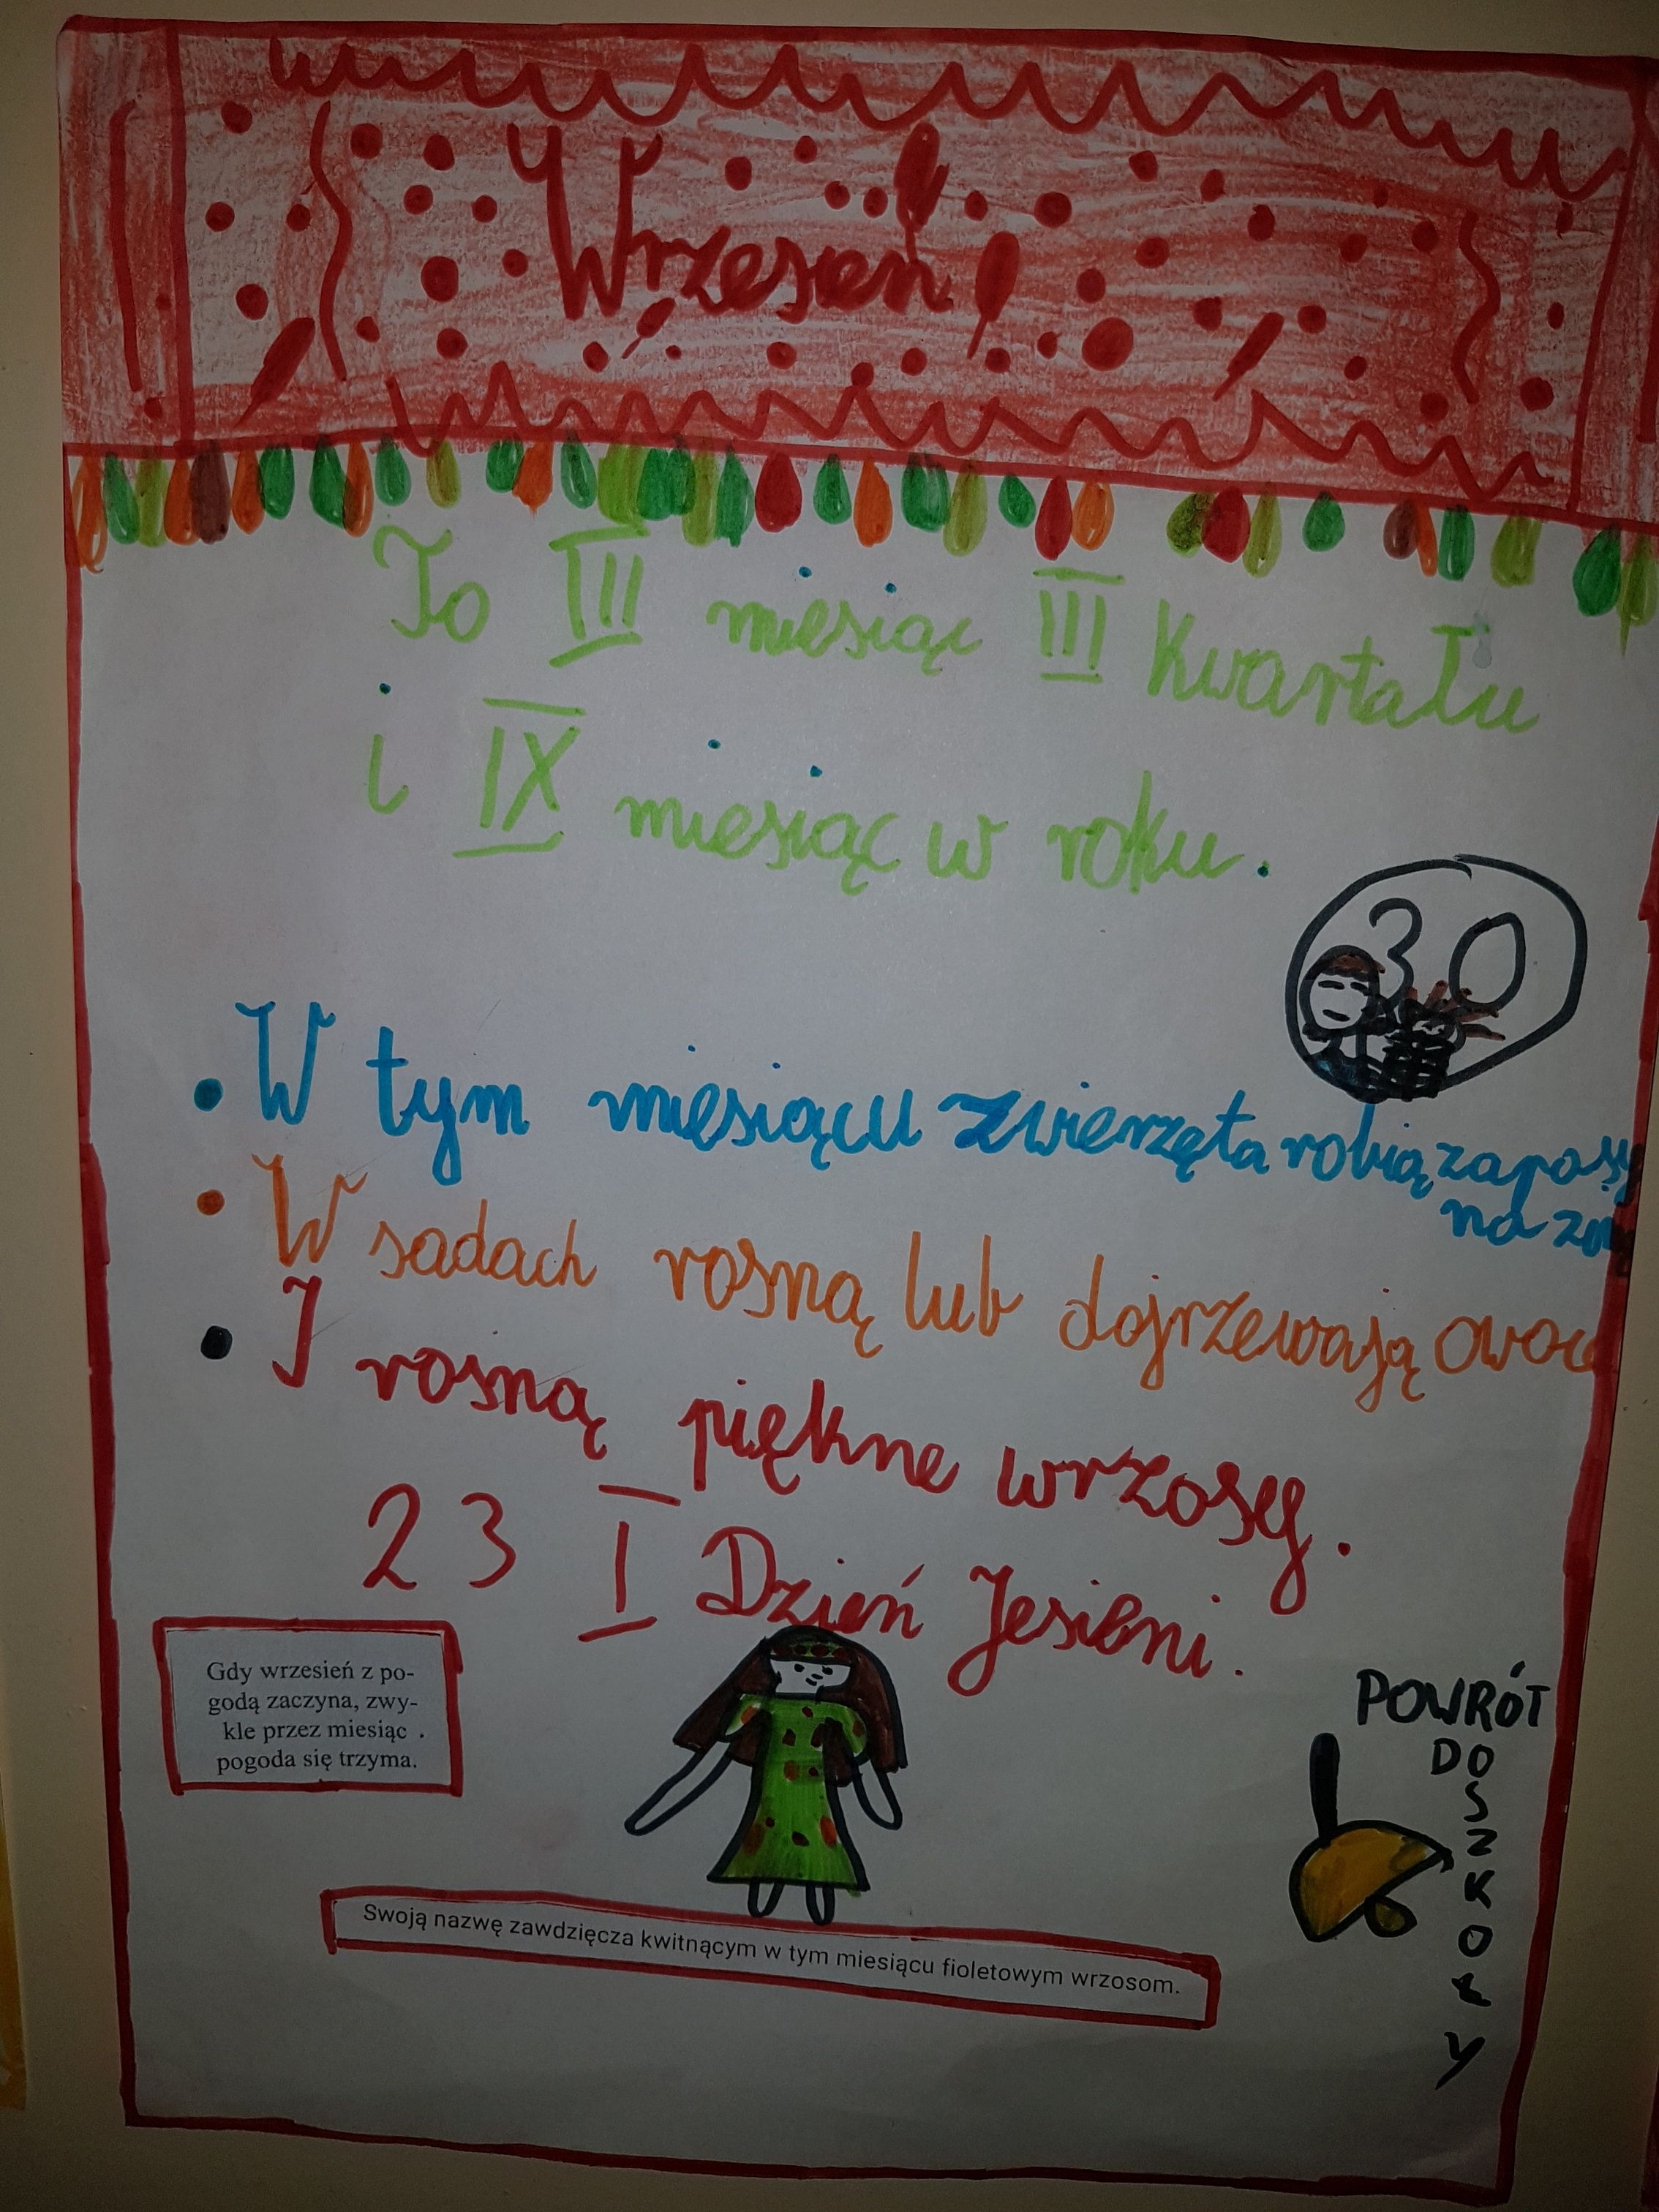 Wrzesień
To III miesiąc III Kwartału
i IX miesiąc w roku.
30
• W tym miesiącu zwierzęta robią zapasy
na
• W sadach rosną lub dojrzewają
• I rosną piękne wrzosy.
23 I Dzień Jesieni.
Gdy wrzesień z po-
godą zaczyna, zwy-
kle przez miesiąc .
pogoda się trzyma.
POWRÓT
DO
SZKOŁY
Swoją nazwę zawdzięcza kwitnącym w tym miesiącu fioletowym wrzosom.